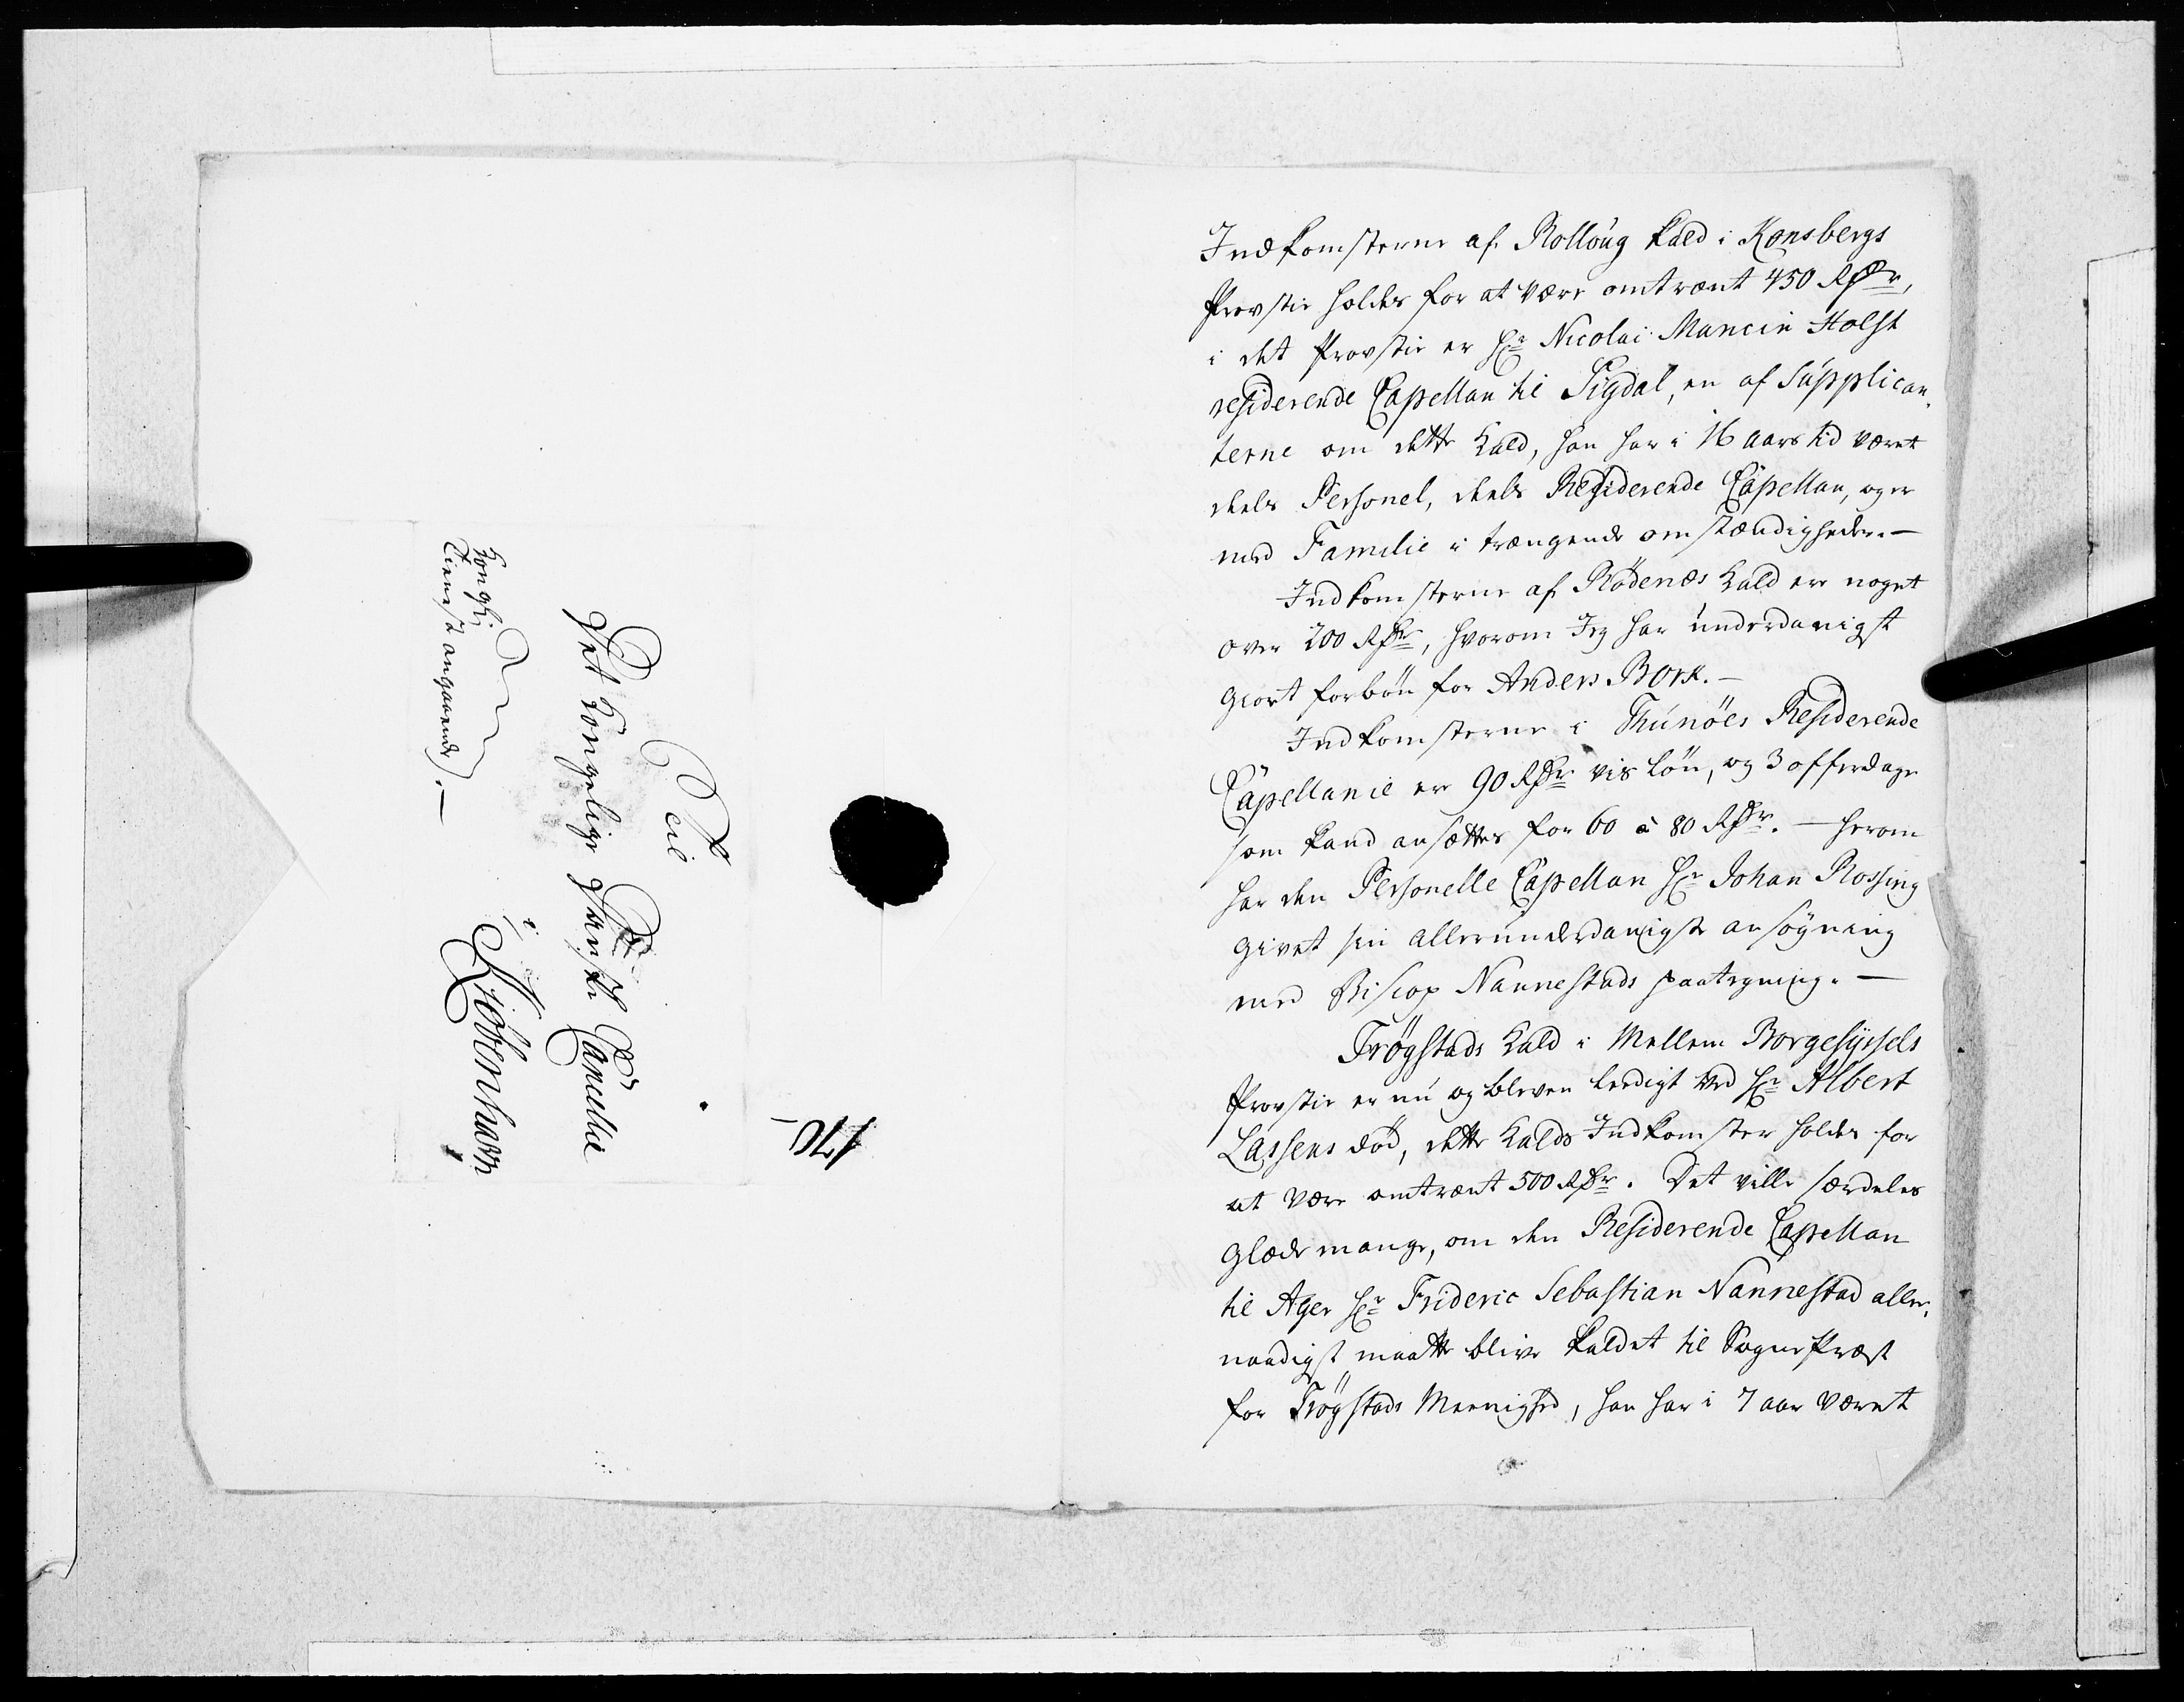 Til
Det Kongelige Danske Cancellie
i Kiøbenhavn
Kongl:
Tienest angaaende).—
170
Indkomsterne af Rolloug Kald i Konsbergs
Provstie holdes for at være omtrent 450 Rdr,
i det Provstie er Hr Nicolai Mancin Holst
residerende Capellan til Sigdal, en af Supplican-
terne om dette Kald, han har i 16 aars tid været
deels Personel, deels Residerende Capellan, og er
med Familie i trængende omstændigheder.—
Indkomsterne af Rødenæs Kald er noget
over 200 Rdr, hvorom Jeg har underdanigst
giort forbøn for Anders Bork.—
Indkomsterne i Thunøes Residerende
Capellanie er 90 Rdr vis Løn, og 3 offerdage
som kand ansættes for 60 à 80 Rdr.— herom
har den Personelle Capellan Hr Johan Rossing
givet sin allerunderdanigste ansøgning
med Biscop Nannestads paategning.—
Trøgstads Kald i Mellem Borgesyssels
Provstie er nu og bleven leedigt ved Hr Albert
Lassens død, dette Kalds Indkomster holdes for
at være omtrent 500 Rdr. Det ville særdeles
glæde mange, om den Residerende Capellan
til Ager Hr Frideric Sebastian Nannestad aller-
naadigst maatte blive kaldet til Sognepræst
for Trøgstads Meenighed, han har i 7 aar været